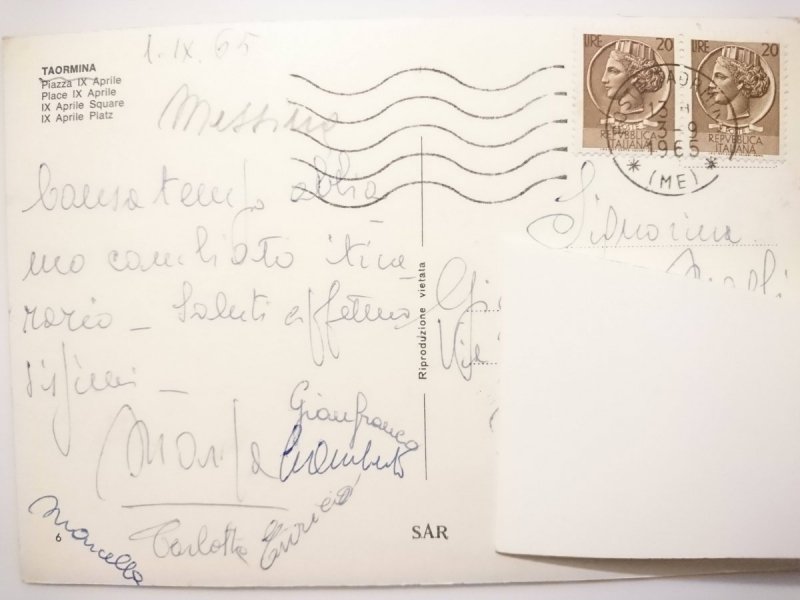 TAORMINA
Piazza IX Aprile
Place IX Aprile
IX Aprile Square
IX Aprile Platz
1.IX.65
Messina
Causa tempo abbia
mo cambiato itine
rario - Saluti affettuo
sissimi -
Gianfranco
Marisa
Umberto
Marcella
Carlotta
Enrico
6
SAR
Riproduzione vietata
LIRE 20
REPVBBLICA
ITALIANA
LIRE 20
REPVBBLICA
ITALIANA
3-9
1965
* (ME) *
Signorina
Via